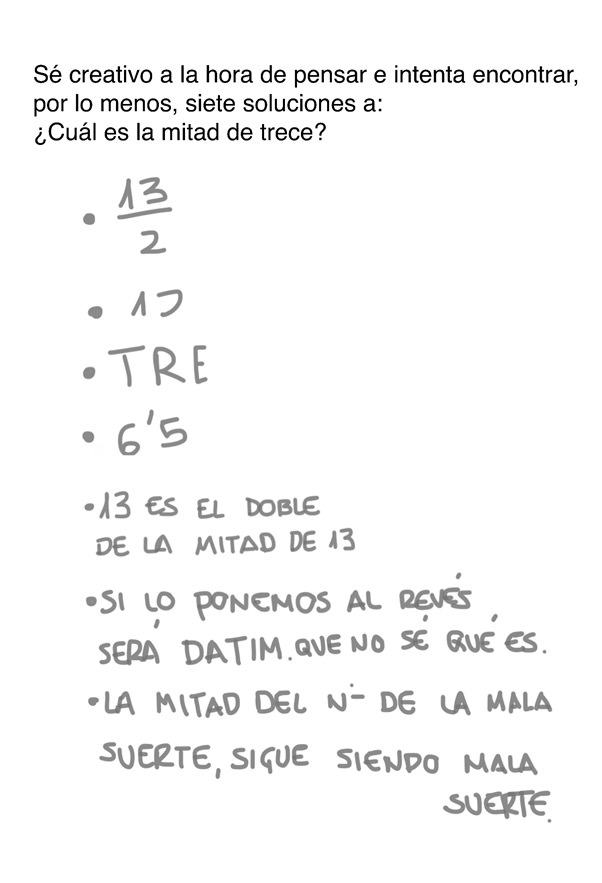 Sé creativo a la hora de pensar e intenta encontrar,
por lo menos, siete soluciones a:
¿Cuál es la mitad de trece?
• 13
2
• 1Ɔ
• TRE
• 6'5
• 13 ES EL DOBLE
DE LA MITAD DE 13
• SI LO PONEMOS AL REVÉS
SERÁ DATIM. QUE NO SÉ QUÉ ES.
• LA MITAD DEL Nº DE LA MALA
SUERTE, SIGUE SIENDO MALA
SUERTE.